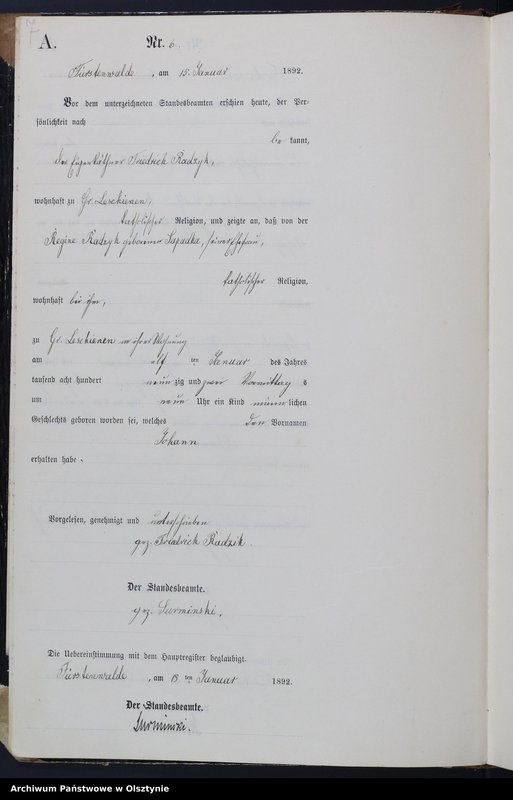 A.
Nr. 6.
Fürstenwalde, am 15. Januar 1892.
Vor dem unterzeichneten Standesbeamten erschien heute, der Per-
sönlichkeit nach
be kannt,
der Eigenkäthner Friedrich Radzyk,
wohnhaft zu Gr. Leschienen,
katholischer Religion, und zeigte an, daß von der
Regine Radzyk geborenen Sapadka, seiner Ehefrau,
katholischer Religion,
wohnhaft bei ihm,
zu Gr. Leschienen in ihrer Wohnung
am elf ten Januar des Jahres
tausend acht hundert neun zig und zwei Vormittag s
um neun Uhr ein Kind männ lichen
Geschlechts geboren worden sei, welches den Vornamen
Johann
erhalten habe.
Vorgelesen, genehmigt und unterschrieben
gez. Friedrich Radzik.
Der Standesbeamte.
gez. Surminski.
Die Uebereinstimmung mit dem Hauptregister beglaubigt.
Fürstenwalde, am 15 ten Januar 1892.
Der Standesbeamte.
Surminski.
Archiwum Państwowe w Olsztynie